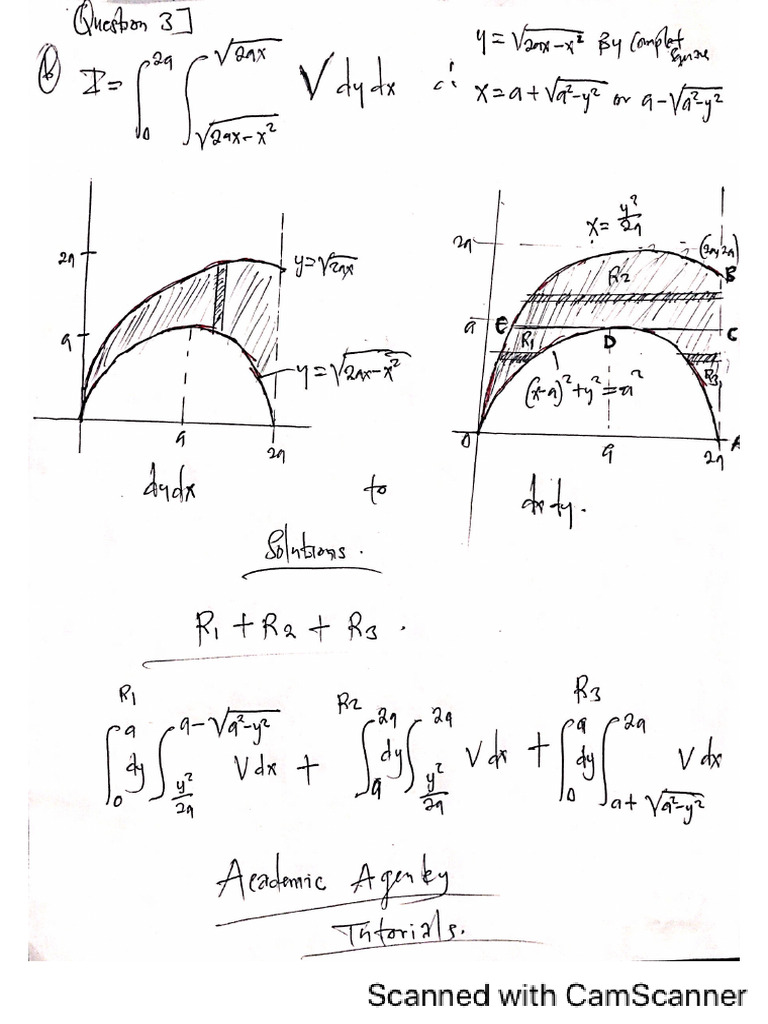 Question 3]
(b) I = ∫_0^{2a} ∫_{√(2ax-x²)}^{√(2ax)} V dy dx
y = √(2ax-x²) By Complet Square
∴ x = a + √(a²-y²) or a - √(a²-y²)
2a
a
y = √(2ax)
y = √(2ax-x²)
a
2a
x = y²/2a
2a
(2a, 2a)
B
R2
a
E
C
R1
D
R3
(x-a)² + y² = a²
0
a
2a
A
dydx to dxdy.
Solutions.
R1 + R2 + R3.
R1 R2 R3
∫_0^a dy ∫_{y²/2a}^{a-√(a²-y²)} V dx + ∫_a^{2a} dy ∫_{y²/2a}^{2a} V dx + ∫_0^a dy ∫_{a+√(a²-y²)}^{2a} V dx
Academic Agenky
Tutorials.
Scanned with CamScanner